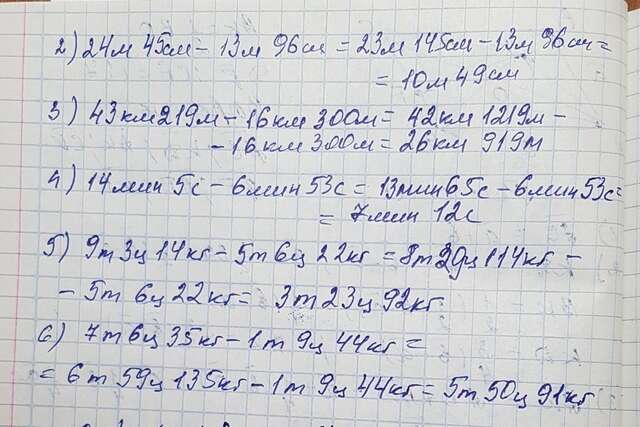 2) 24м 45см - 13м 96см = 23м 145см - 13м 96см =
= 10м 49см
3) 43км 219м - 16км 300м = 42км 1219м -
- 16км 300м = 26км 919м
4) 14мин 5с - 6мин 53с = 13мин 65с - 6мин 53с =
= 7мин 12с
5) 9т 3ц 14кг - 5т 6ц 22кг = 8т 29ц 114кг -
- 5т 6ц 22кг = 3т 23ц 92кг
6) 7т 6ц 35кг - 1т 9ц 44кг =
= 6т 59ц 135кг - 1т 9ц 44кг = 5т 50ц 91кг